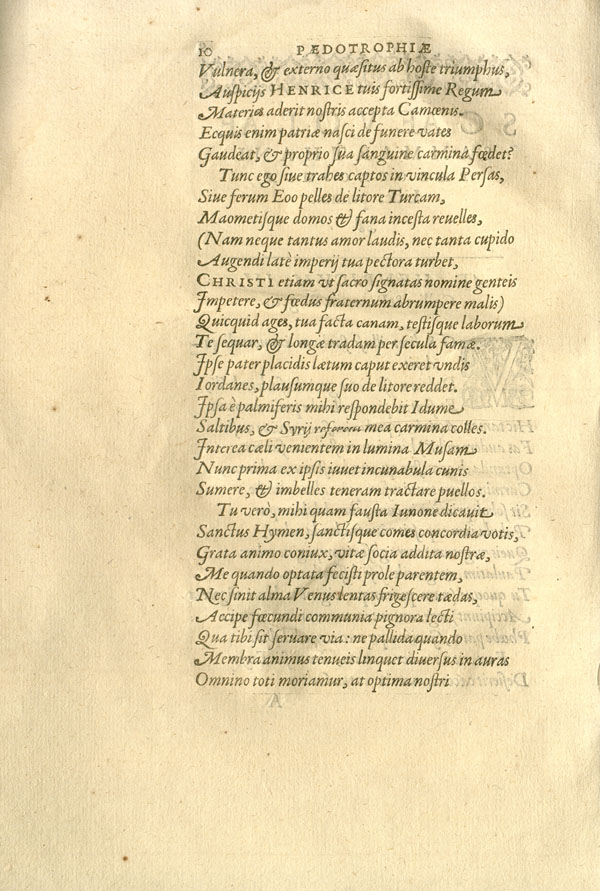 10 PÆDOTROPHIÆ
Vulnera, & externo quæsitus ab hoste triumphus,
Auspicijs HENRICE tuis fortissime Regum
Materia aderit nostris accepta Camœnis.
Ecquis enim patriæ nasci de funere vates
Gaudeat, & proprio sua sanguine carmina fœdet?
Tunc ego siue trahes captos in vincula Persas,
Siue ferum Eoo pelles de litore Turcam,
Maometisque domos & fana incesta reuelles,
(Nam neque tantus amor laudis, nec tanta cupido
Augendi latè imperij tua pectora turbet,
CHRISTI etiam vt sacro signatas nomine genteis
Impetere, & fœdus fraternum abrumpere malis)
Quicquid ages, tua facta canam, testisque laborum
Te sequar, & longæ tradam per secula famæ.
Ipse pater placidis lætum caput exeret vndis
Iordanes, plausumque suo de litore reddet.
Ipsa è palmiferis mihi respondebit Idume
Saltibus, & Syrij referent mea carmina colles.
Interea cæli venientem in lumina Musam
Nunc prima ex ipsis iuuet incunabula cunis
Sumere, & imbelles teneram tractare puellos.
Tu verò, mihi quam fausta Iunone dicauit
Sanctus Hymen, sanctisque comes concordia votis,
Grata animo coniux, vitæ socia addita nostræ,
Me quando optata fecisti prole parentem,
Nec sinit alma Venus lentas frigescere tædas,
Accipe fœcundi communia pignora lecti
Qua tibi sit seruare via: ne pallida quando
Membra animus tenueis linquet diuersus in auras
Omnino toti moriamur, at optima nostri